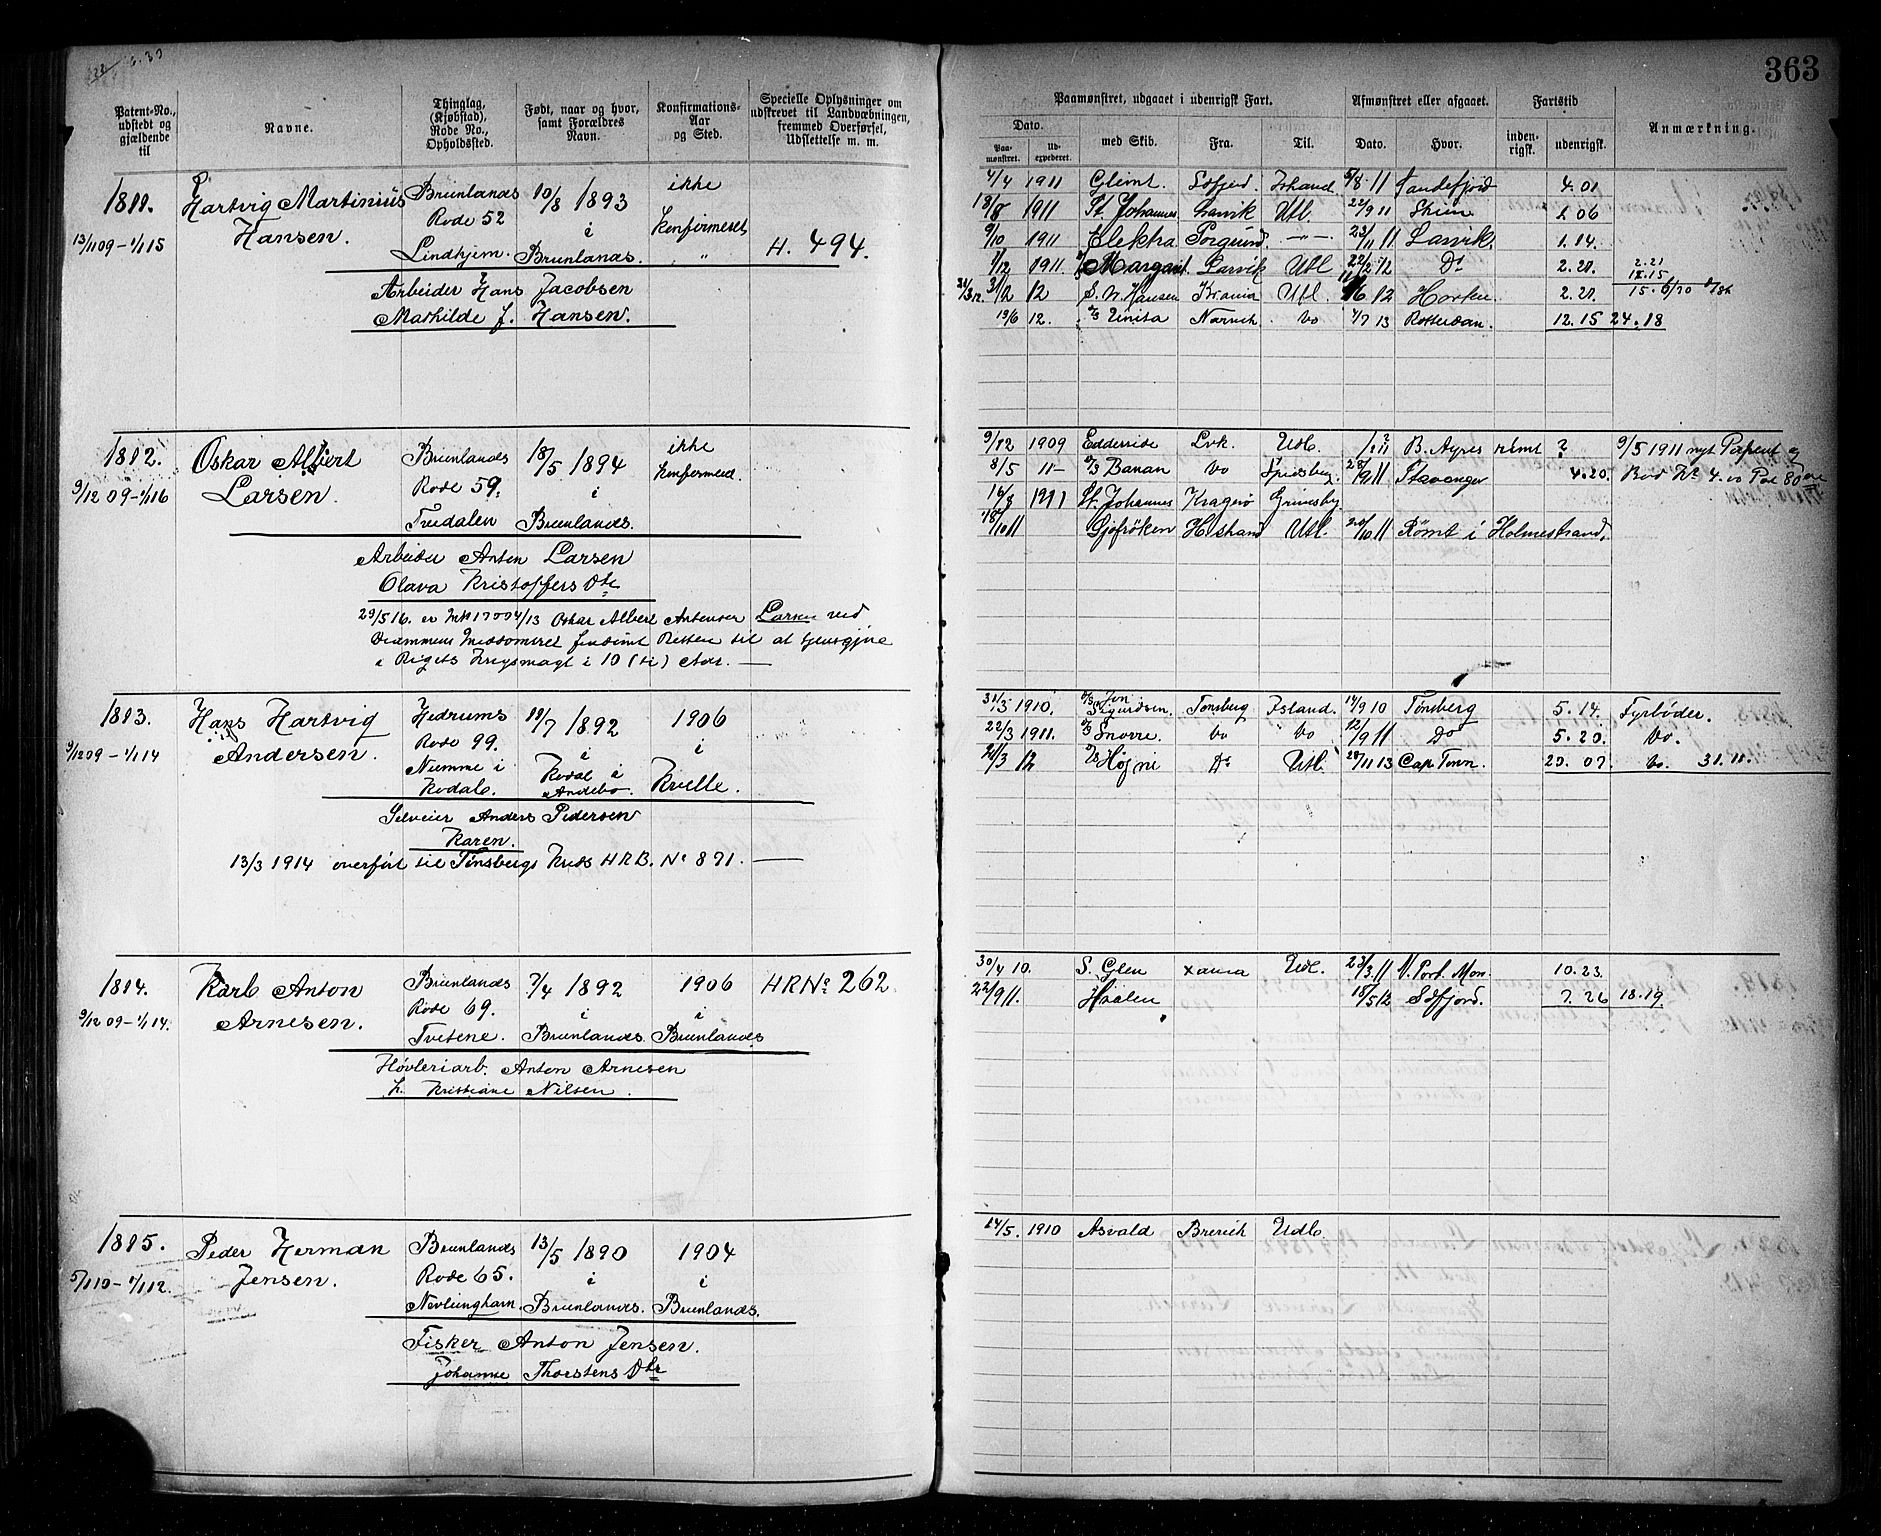 363
Patent-No., udstedt og gjældende til
Navne.
Thinglag, (Kjøbstad), Rode No., Opholdssted.
Født, naar og hvor, samt Forældres Navn.
Konfirmations-Aar og Sted.
Specielle Oplysninger om udskrevet til Landværningen, fremmed Overførsel, Udslettelse m. m.
Paamønstret, udgaaet i udenrigsk Fart.
Afmønstret eller afgaaet.
Fartstid
Anmærkning.
Dato.
Paa-mønstret.
Ud-expederet.
med Skib.
Fra.
Til.
Dato.
Hvor.
inden-rigsk.
udenrigsk.
1811.
Hartvig Martinius
Hansen.
13/11 09 - 1/1 15
Brunlanæs
Rode 52
Lindhjem.
10/8 1893
i
Brunlanæs.
ikke
konfirmeret
"
H. 494.
Arbeider Hans Jacobsen
Mathilde f. Hansen.
4/4 1911 Glimt. Sdfjord. Ishand 5/8 11 Sandefjord 4.01
18/8 1911 St Johannes Larvik Utl 22/9 11 Skien 1.06
9/10 1911 Elektra Porsgrund. —"— 23/11 11 Larvik 1.14.
1/12 1911. Margaret Larvik Utl 22/2 12 Do 2.21. 2.21
12 S. N. Hansen Krania Utl. 12 Horten 2.21.
19/6 12. D/S Unita Narvik. Do 4/7 13 Rotterdam. 12.15 24.18
1812.
Oskar Albert
Larsen.
9/12 09 - 1/1 16
Brunlanæs
Rode 59.
Treidalen
18/5 1894
i
Brunlanæs.
ikke
konfirmered.
Arbeider Anton Larsen
Olava Kristoffers Dtr
29/5 16. er Mtr 1700 4/13 Oskar Albert Antonsen Larsen ved
Drammens Meddomsret fradømt Retten til at tjenstgjøre
i Rigets Krigsmagt i 10 (ti) Aar. —
9/12 1909 Edderside Lvk. Udl. B. Ayres rømt ?
8/5 11 - D/S Banan Do 11 Stavanger 4.20.
9/5 1911 nyt Patent og
16/8 1911 St. Johannes Kragerø Grimsby
18/10 11 Gjøfrøken H.strand Utl. 20/10 11 Rømt i Holmestrand.
1813.
Hans Hartvig
Andersen.
9/12 09 - 1/1 14
Hedrums
Rode 99.
Nomme i
Kodal.
11/7 1892
i
Kodal i
Andebo.
1906
i
Kvelle.
Selveier Anders Pedersen
Karen.
13/3 1914 overført til Tønsbergs Kreds H R B. No 891. —
31/3 1910. D/S Jon Sigurdson. Tønsberg Island. 14/9 10 Tønsberg 5.14. Fyrbøder.
22/3 1911. D/S Snorre. Do Do 12/9 11 Do 5.20. Do.
21/3 12 D/S Højni Do Utl. 28/11 13 Cap Town. 20.07. Do. 31.11.
1814.
Karl Anton
Arnesen.
9/12 09 - 1/1 14.
Brunlanæs
Rode 69.
Tvetene.
7/4 1892
i
Brunlanæs.
1906
i
Brunlanæs
HRNo 262.
Høvleriarb. Anton Arnesen
h. Kristiane Nilsen.
30/4 10. S. Glen Udl. 23/3 11 10.23.
22/9 11. 18/5 12 Sdfjord. 7.26 18.19
1815.
Peder Herman
Jensen.
5/1 10 - 1/1 12.
Brunlanæs
Rode 65.
Nevlunghavn.
13/5 1890
i
Brunlanæs.
1904
i
Brunlanæs.
Fisker Anton Jensen.
Johanne Thorstens Dtr
14/5. 1910 Asvald Brevik Udl.